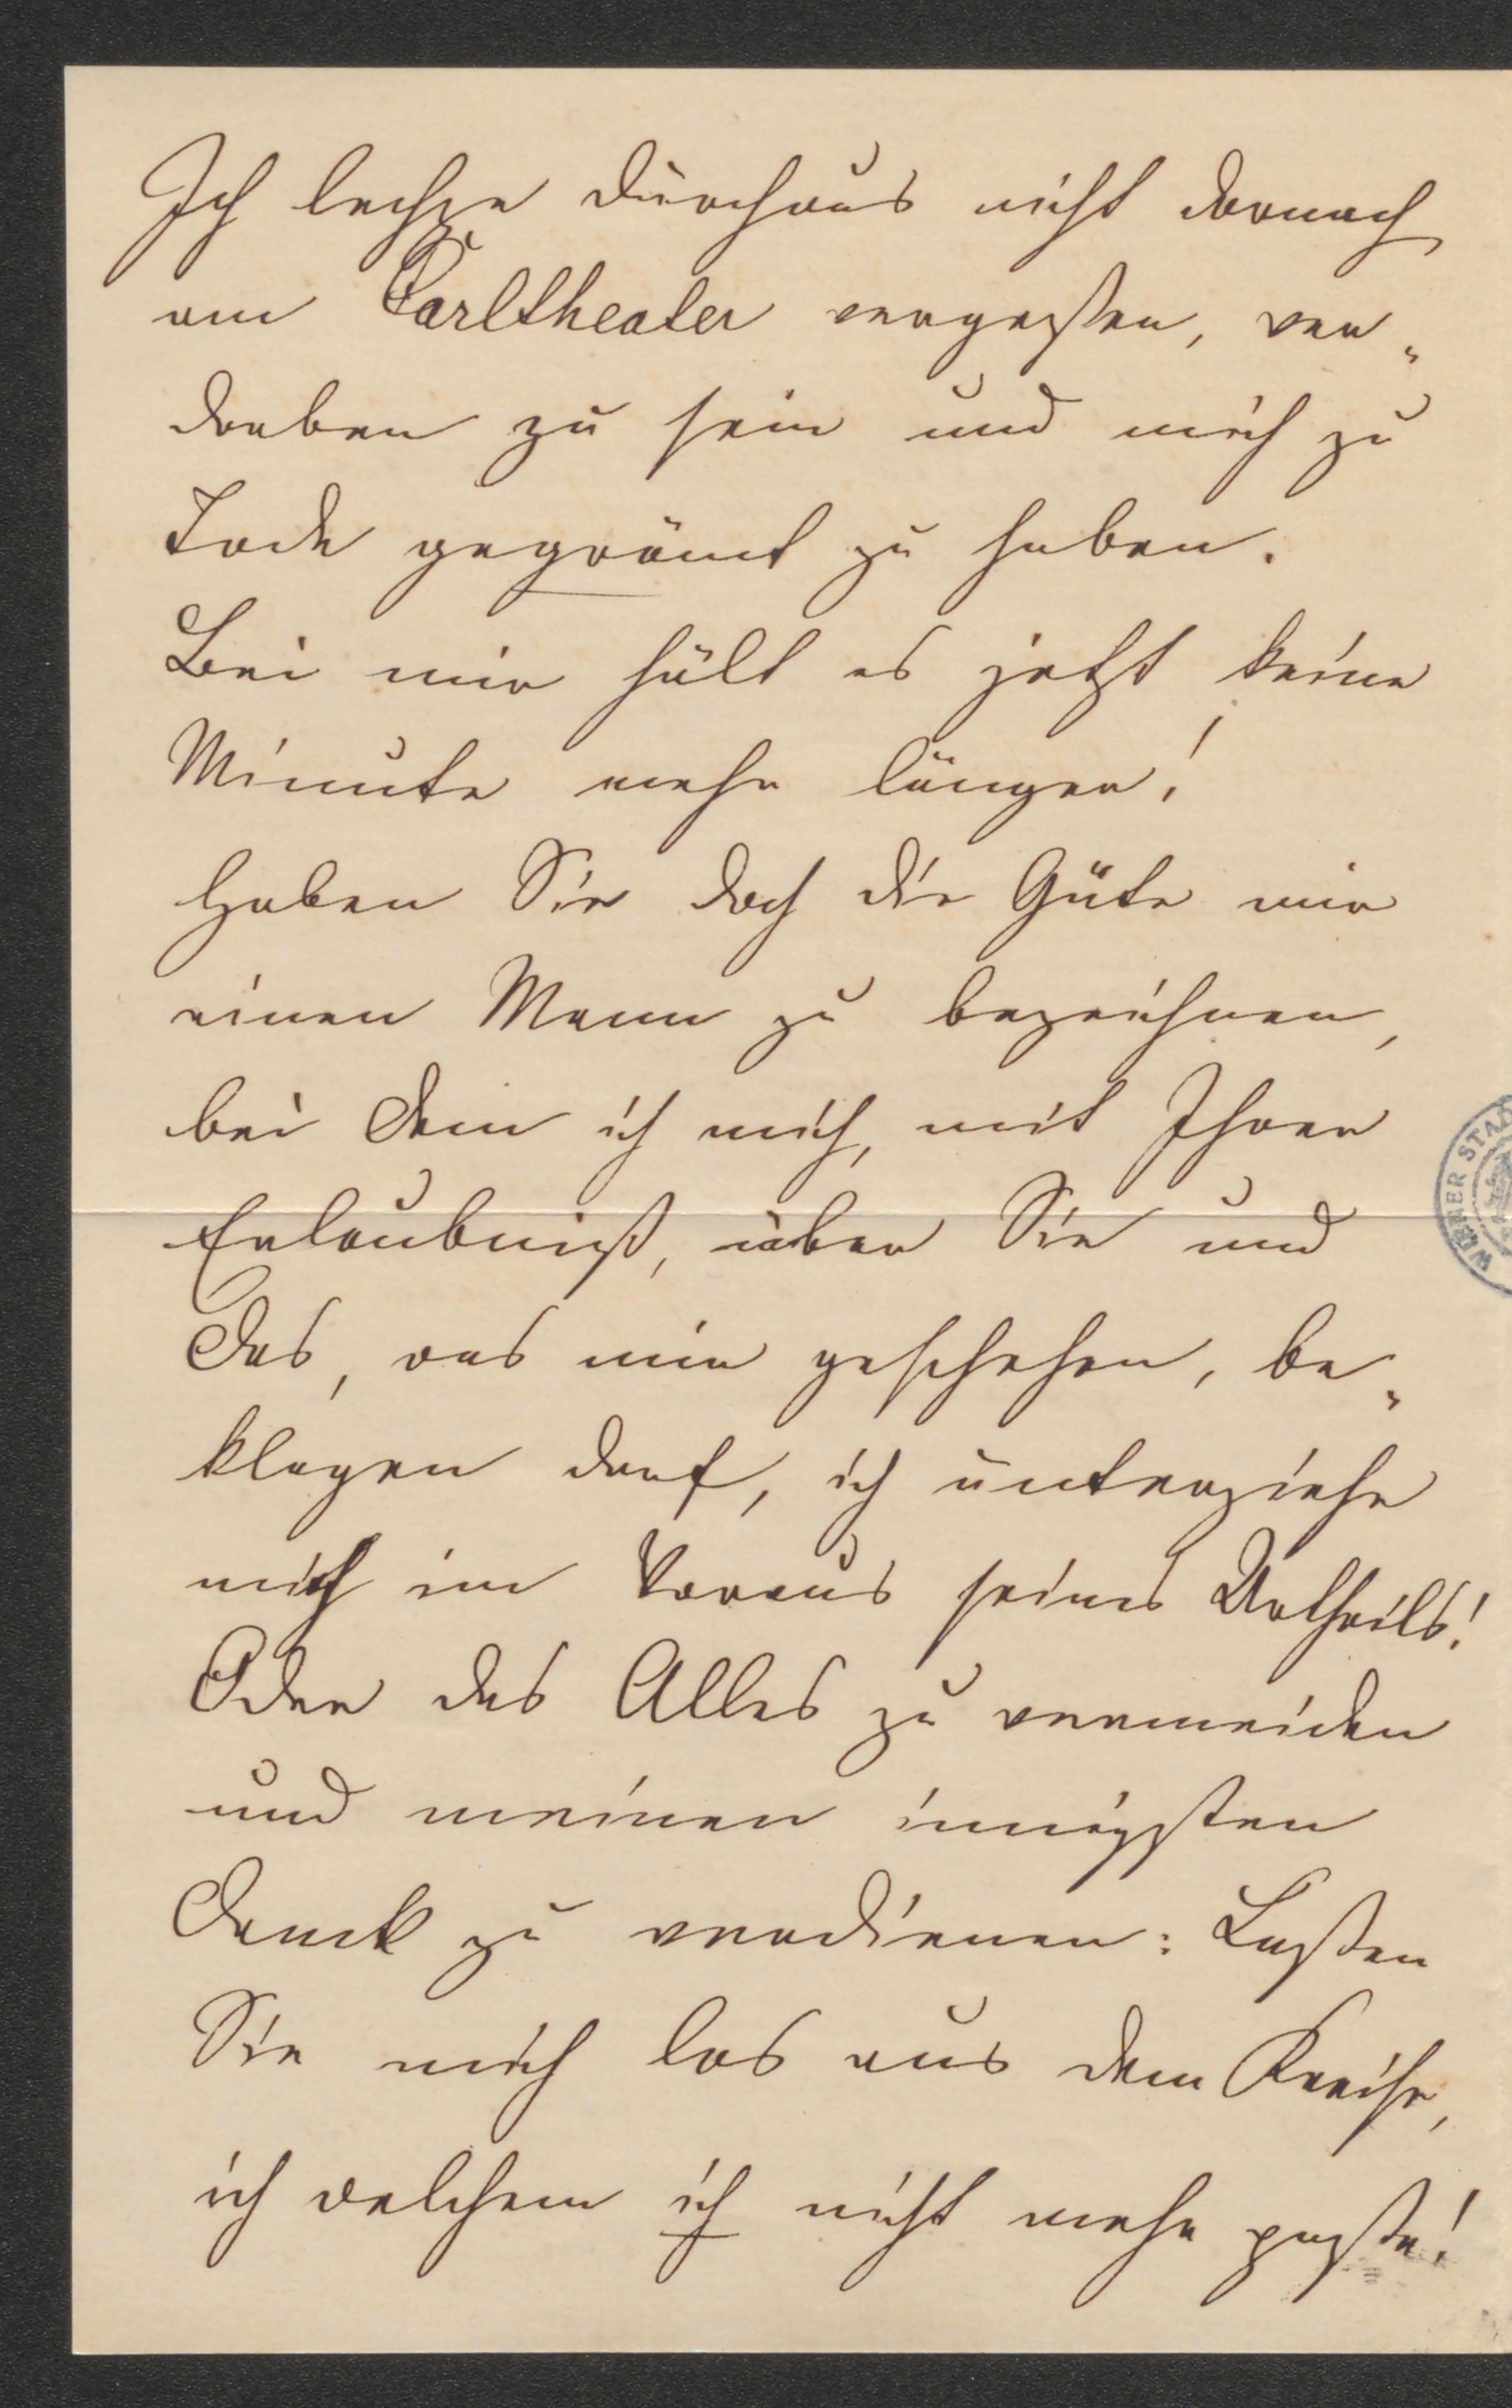 Ich lechze durchaus nicht darnach
am Carltheater vergeßen, ver„
dorben zu sein und mich zu
Tode gegrämt zu haben.
Bei mir hält es jetzt keine
Minute mehr länger!
Haben Sie doch die Güte mir
einen Mann zu bezeichnen,
bei dem ich mich, mit Ihrer
Erlaubniß, über Sie und
das, was mir geschehen, be„
klagen darf, ich unterziehe
mich im Voraus seines Urtheils!
Oder das Alles zu vermeiden
und meinen innigsten
Dank zu verdienen: Laßen
Sie mich los aus dem Kreise,
ich welchem ich nicht mehr paße!
WIENER STAD